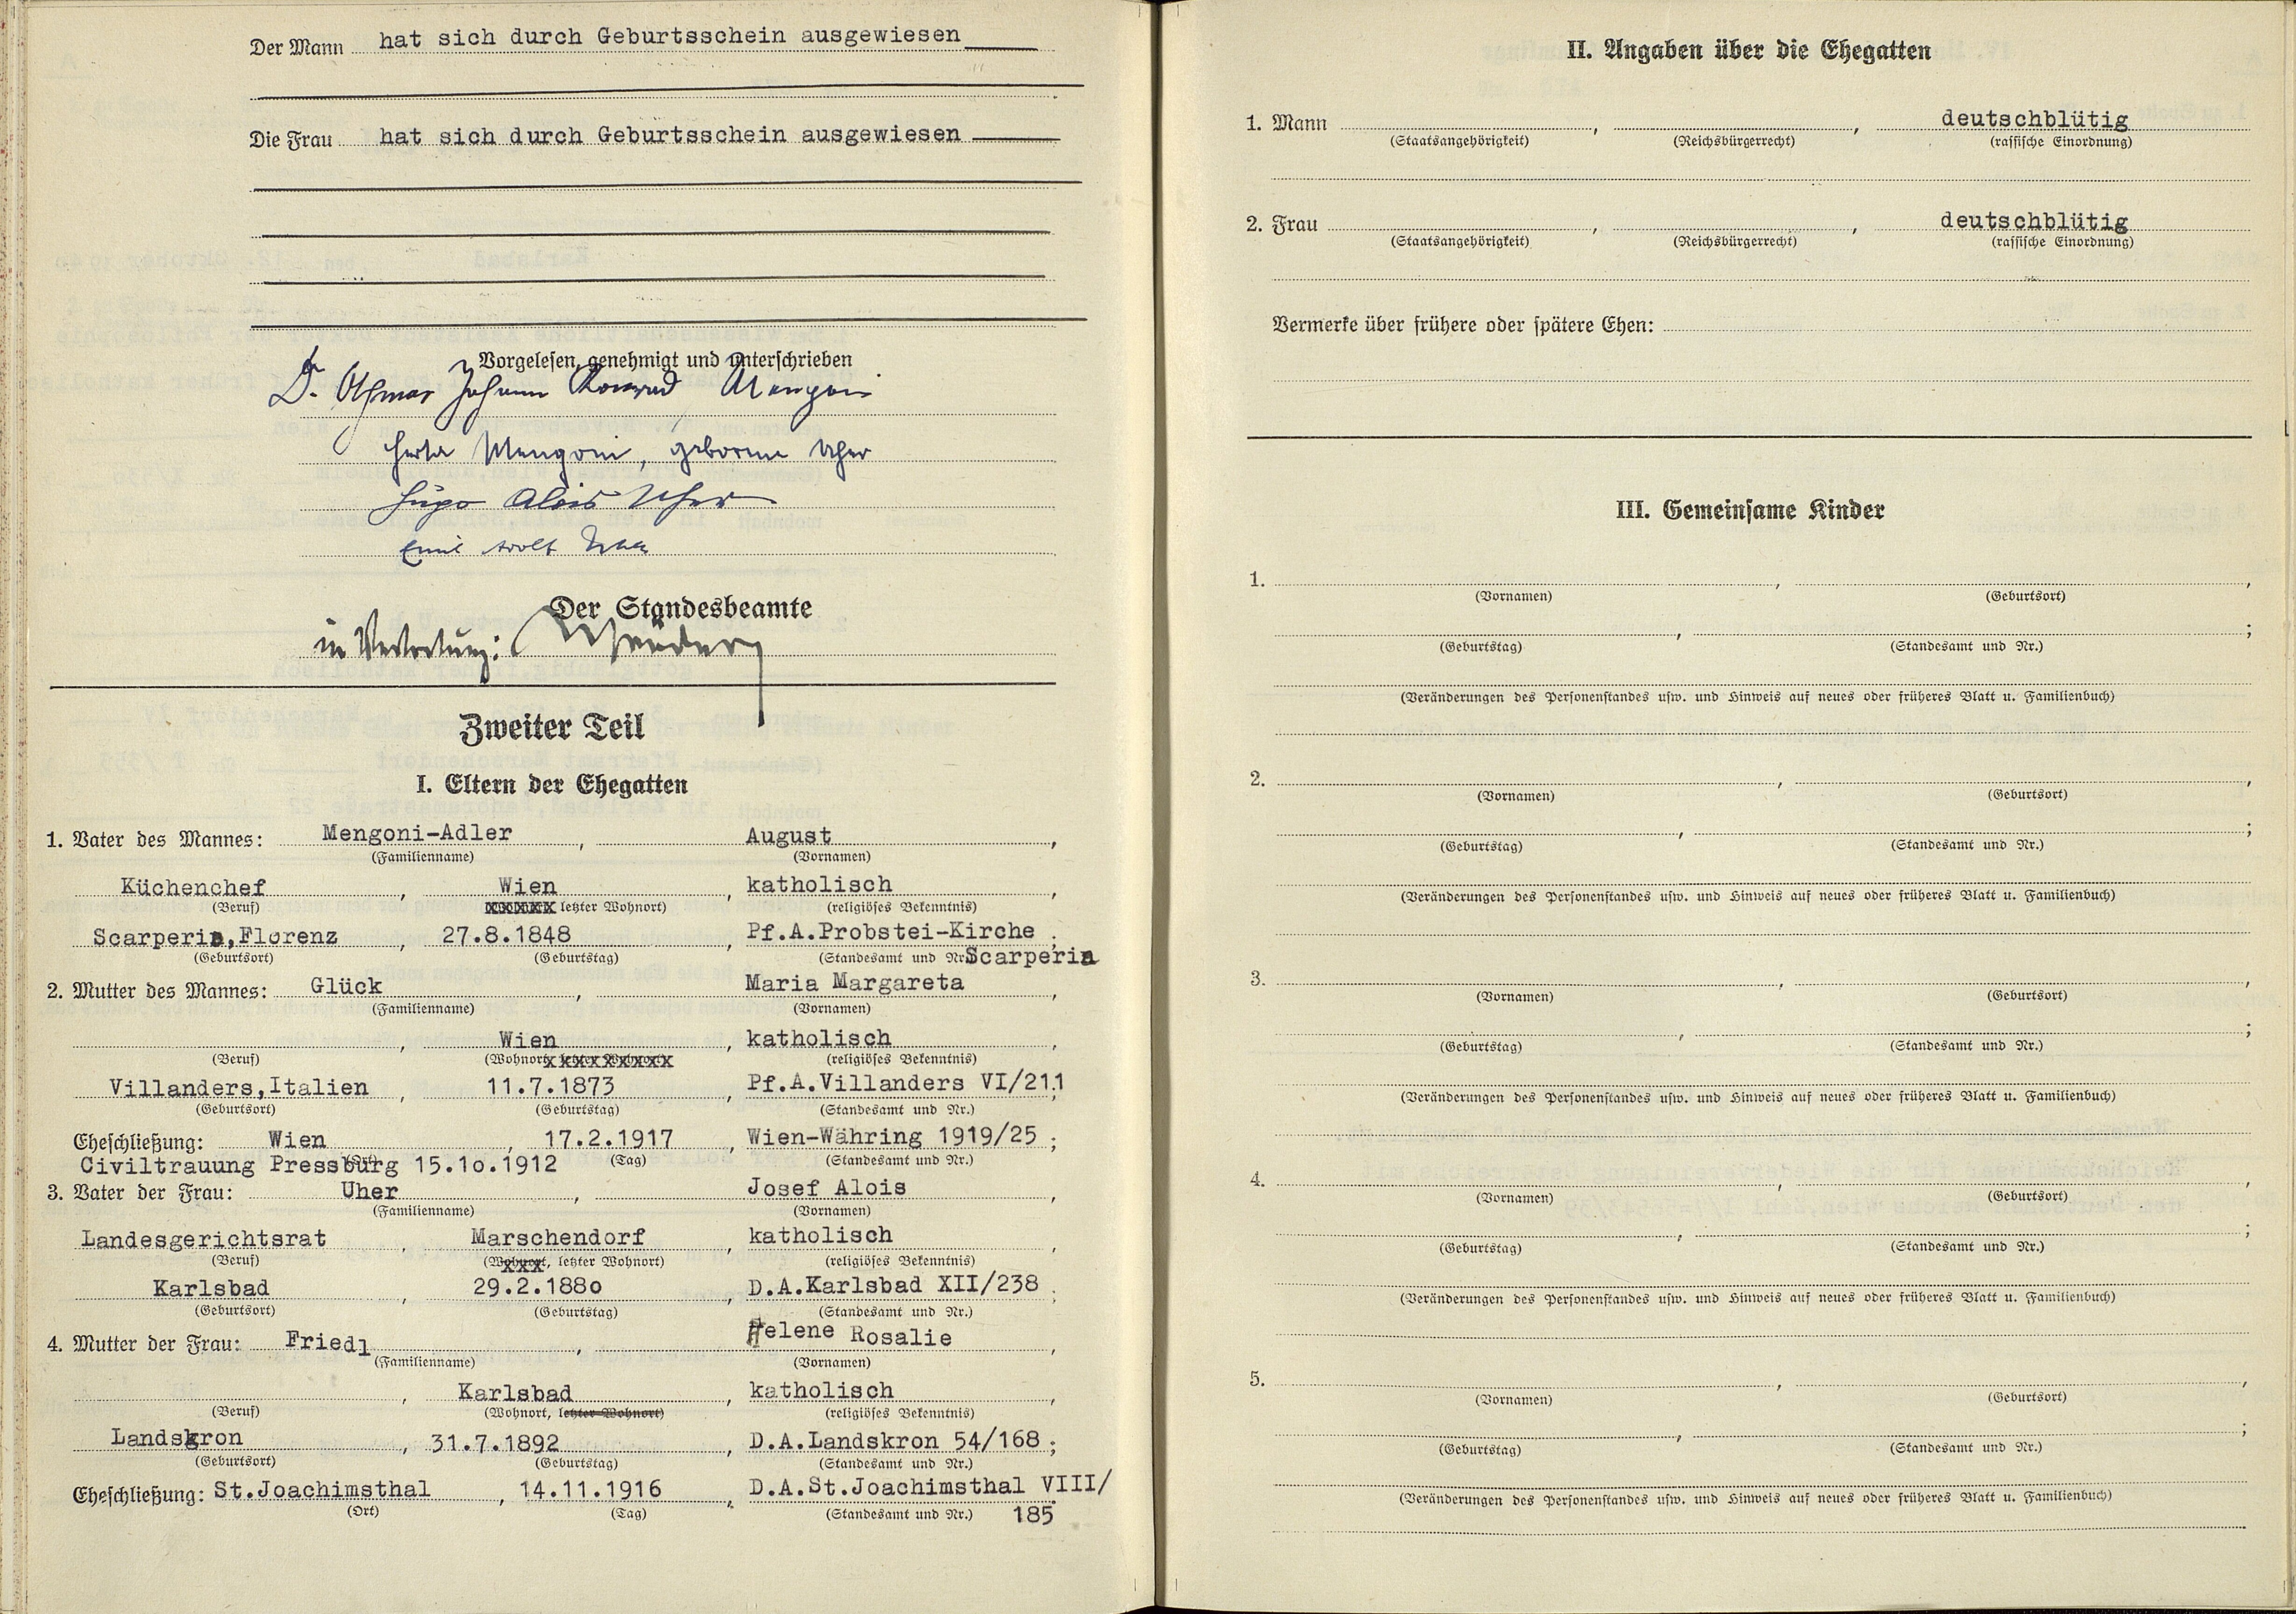 Der Mann hat sich durch Geburtsschein ausgewiesen
Die Frau hat sich durch Geburtsschein ausgewiesen
Vorgelesen, genehmigt und unterschrieben
Dr. Othmar Johann Konrad Mengoni
Herta Mengoni, geborene Uher
Hugo Alois Uher
Emil
Der Standesbeamte
in Vertretung:
Zweiter Teil
I. Eltern der Ehegatten
1. Vater des Mannes: Mengoni-Adler, August,
(Familienname) (Vornamen)
Küchenchef, Wien, katholisch,
(Beruf) letzter Wohnort) (religiöses Bekenntnis)
Scarperia, Florenz, 27.8.1848, Pf.A.Probstei-Kirche;
(Geburtsort) (Geburtstag) (Standesamt und Nr. Scarperia
2. Mutter des Mannes: Glück, Maria Margareta,
(Familienname) (Vornamen)
, Wien, katholisch,
(Beruf) (Wohnort, letzter Wohnort) (religiöses Bekenntnis)
Villanders, Italien, 11.7.1873, Pf.A.Villanders VI/211;
(Geburtsort) (Geburtstag) (Standesamt und Nr.)
Eheschließung: Wien, 17.2.1917, Wien-Währing 1919/25;
(Ort) (Tag) (Standesamt und Nr.)
Civiltrauung Pressburg 15.1o.1912
3. Vater der Frau: Uher, Josef Alois,
(Familienname) (Vornamen)
Landesgerichtsrat, Marschendorf, katholisch,
(Beruf) (Wohnort, letzter Wohnort) (religiöses Bekenntnis)
Karlsbad, 29.2.188o, D.A.Karlsbad XII/238;
(Geburtsort) (Geburtstag) (Standesamt und Nr.)
4. Mutter der Frau: Friedl, Helene Rosalie,
(Familienname) (Vornamen)
, Karlsbad, katholisch,
(Beruf) (Wohnort, letzter Wohnort) (religiöses Bekenntnis)
Landskron, 31.7.1892, D.A.Landskron 54/168;
(Geburtsort) (Geburtstag) (Standesamt und Nr.)
Eheschließung: St.Joachimsthal, 14.11.1916, D.A.St.Joachimsthal VIII/
(Ort) (Tag) (Standesamt und Nr.) 185
II. Angaben über die Ehegatten
1. Mann , , deutschblütig
(Staatsangehörigkeit) (Reichsbürgerrecht) (rassische Einordnung)
2. Frau , , deutschblütig
(Staatsangehörigkeit) (Reichsbürgerrecht) (rassische Einordnung)
Vermerke über frühere oder spätere Ehen:
III. Gemeinsame Kinder
1. , ,
(Vornamen) (Geburtsort)
, ;
(Geburtstag) (Standesamt und Nr.)
(Veränderungen des Personenstandes usw. und Hinweis auf neues oder früheres Blatt u. Familienbuch)
2. , ,
(Vornamen) (Geburtsort)
, ;
(Geburtstag) (Standesamt und Nr.)
(Veränderungen des Personenstandes usw. und Hinweis auf neues oder früheres Blatt u. Familienbuch)
3. , ,
(Vornamen) (Geburtsort)
, ;
(Geburtstag) (Standesamt und Nr.)
(Veränderungen des Personenstandes usw. und Hinweis auf neues oder früheres Blatt u. Familienbuch)
4. , ,
(Vornamen) (Geburtsort)
, ;
(Geburtstag) (Standesamt und Nr.)
(Veränderungen des Personenstandes usw. und Hinweis auf neues oder früheres Blatt u. Familienbuch)
5. , ,
(Vornamen) (Geburtsort)
, ;
(Geburtstag) (Standesamt und Nr.)
(Veränderungen des Personenstandes usw. und Hinweis auf neues oder früheres Blatt u. Familienbuch)